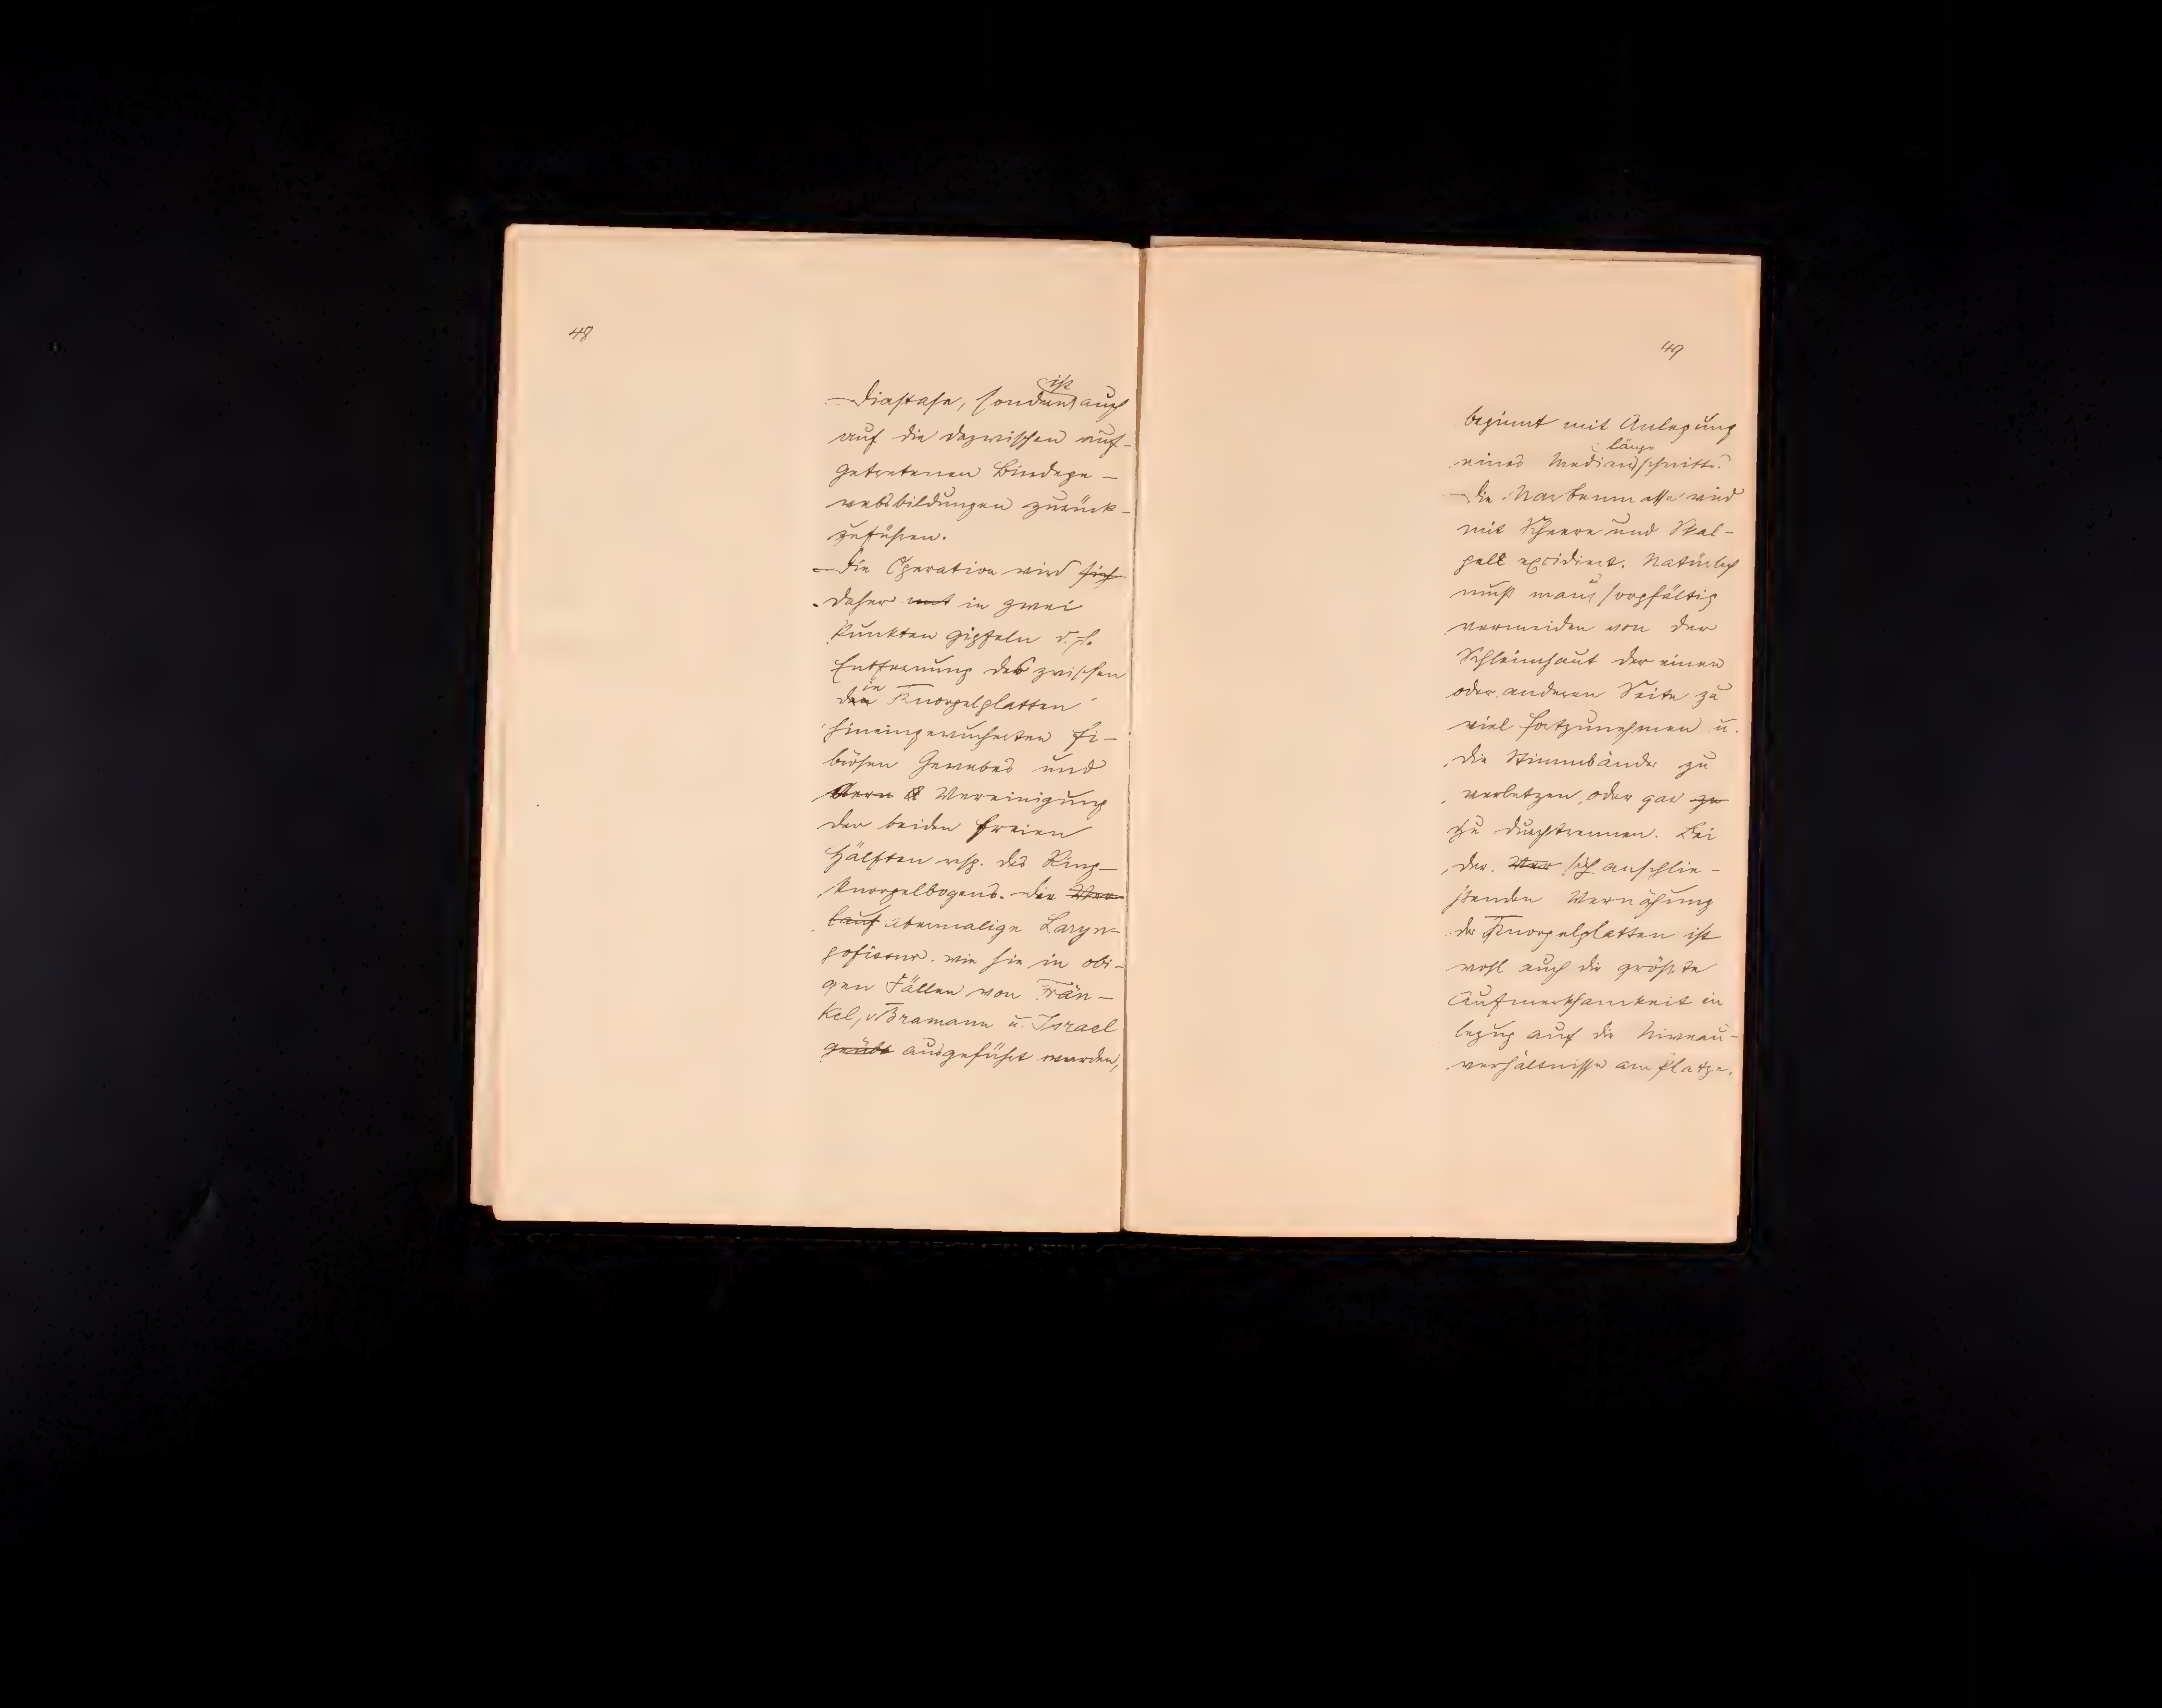 48
Diastase, sondern ist auch
auf die dazwischen auf-
getretenen Bindege-
websbildungen zurück-
zuführen.
Die Operation wird sich
daher mit in zwei
Punkten gipfeln d. h.
Entfernung des zwischen
die Knorpelplatten
hineingewucherten fi-
brösen Gewebes und
Vereinigung
der beiden freien
Hälften resp. des Ring-
knorpelbogens. Die Ver-
lauf abermalige Laryn-
gofissur wie sie in obi-
gen Fällen von Frän-
kel, v Bramann u. Israel
geübt ausgeführt wurden,
49
beginnt mit Anlegung
eines Medianlängsschnitts.
Die Narbenmasse wird
mit Scheere und Skal-
pell excidiert. Natürlich
muß man es sorgfältig
vermeiden von der
Schleimhaut der einen
oder anderen Seite zu
viel fortzunehmen u.
die Stimmbänder zu
verletzen, oder gar zu
zu durchtrennen. Bei
der Ver sich anschlie-
ßenden Vernähung
der Knorpelplatten ist
wohl auch die größte
Aufmerksamkeit in
bezug auf die Niveau-
verhältnisse am Platze.